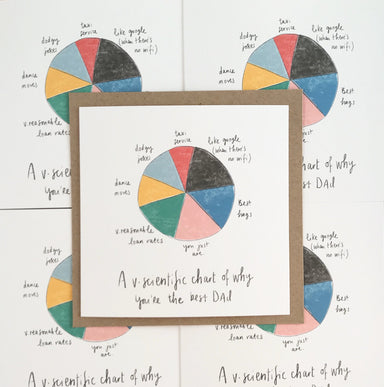 taxi
service
like google
(when there's
no wifi)
dodgy
jokes
dance
moves
v.reasonable
loan rates
A v.scie
you're
taxi
service
like google
(when there's
no wifi)
dodgy
jokes
dance
moves
Best
hugs
chart of why
best Dad
taxi
service
like google
(when there's
no wifi)
dodgy
jokes
dance
moves
Best
hugs
v.reasonable
loan rates
you just
are
A v.scientific chart of why
you're the best Dad
dodgy
jokes
dance
moves
v.reasonable
loan rates
you just
are
A v.scientific chart of why
Best
hugs
you just
are
A v.scientific chart of why